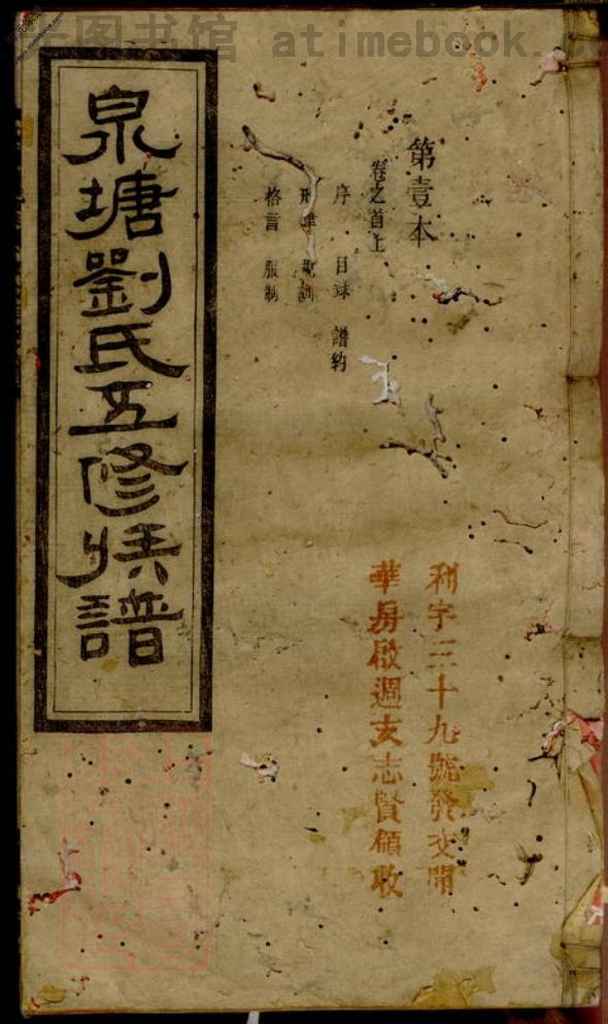 图书馆 atimebook.c
第壹本
卷之首上
序 目录 譜約
格言 服制
泉塘劉氏五修族譜
利字三十九號發交開
華房啟週支志賢領收